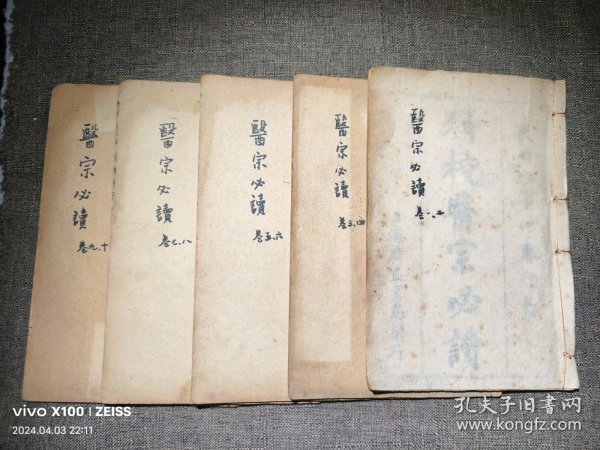 醫宗必讀
卷一、二
醫宗必讀
卷三、四
醫宗必讀
卷五、六
醫宗必讀
卷七、八
醫宗必讀
卷九、十
校醫宗必讀
vivo X100 | ZEISS
2024.04.03 22:11
孔夫子旧书网
www.kongfz.com